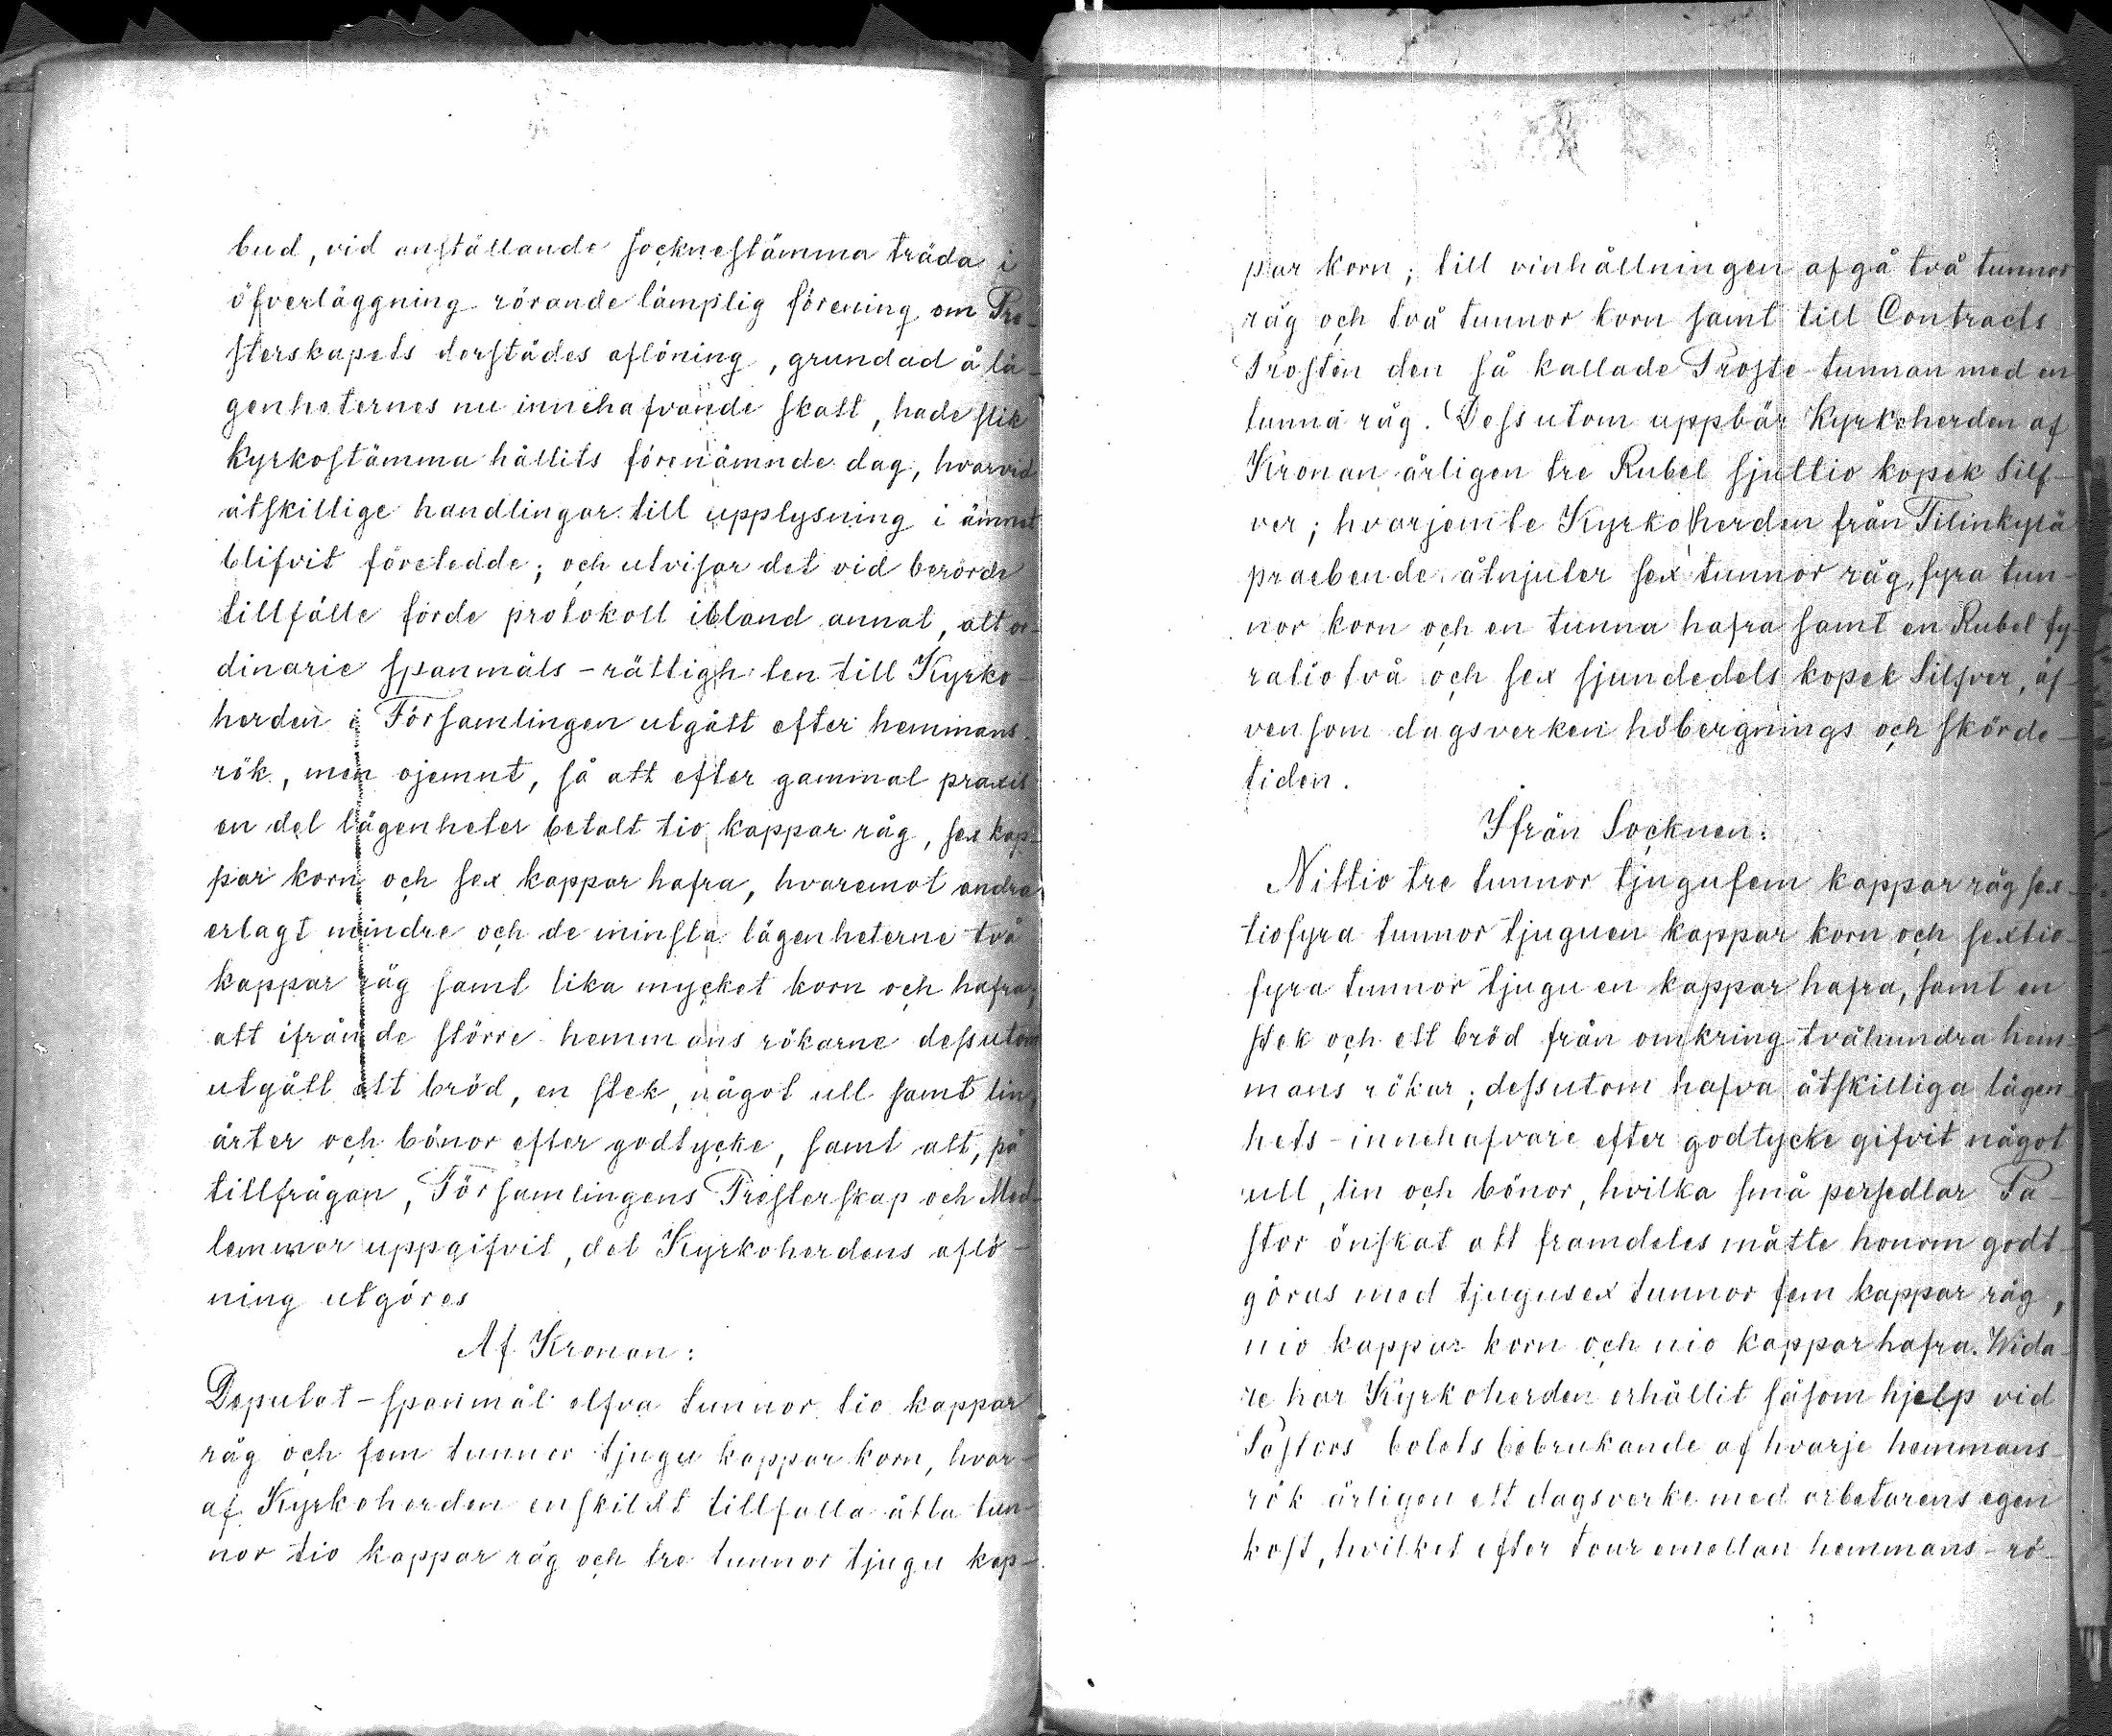 bud, vid anställande socknestämma träda i
öfverläggning rörande lämplig förening om Pre-
sterskapets derstädes aflöning, grundad å lä-
genheternes nu innehafvande skatt, hade slik
kyrkostämma hållits förenämnde dag, hvarvid
åtskillige handlingar till upplysning i ämnet
blifvit företedde; och utvisar det vid berörde
tillfälle förde protokoll ibland annat, att or-
dinarie spanmåls-rättigheten till Kyrko-
herden i Församlingen utgått efter hemmans-
rök, men ojemnt, så att efter gammal praxis
en del lägenheter betalt tio kappar råg, sex kap-
par korn och sex kappar hafra, hvaremot andra
erlagt mindre och de minsta lägenheterne två
kappar råg samt lika mycket korn och hafra,
att ifrån de större hemmans rökarne dessutom
utgått ett bröd, en stek, något ull samt lin,
ärter och bönor efter godtycke, samt att, på
tillfrågan, Församlingens Presterskap och Med-
lemmar uppgifvit, det Kyrkoherdens aflö-
ning utgöres
Af Kronan:
Deputat-spanmål elfva tunnor tio kappar
råg och fem tunnor tjugu kappar korn, hvar-
af Kyrkoherden enskildt tillfalla åtta tun-
nor tio kappar råg och tre tunnor tjugu kap-
par korn; till vinhållningen afgå två tunnor
råg och två tunnor korn samt till Contracts
Prosten den så kallade Proste-tunnan med en
tunna råg. Dessutom uppbär Kyrkoherden af
Kronan årligen tre Rubel sjuttio kopek Silf-
ver; hvarjemte Kyrkoherden från Tilinkylä
praebende åtnjuter sex tunnor råg, fyra tun-
nor korn och en tunna hafra samt en Rubel fy-
ratiotvå och sex sjundedels kopek Silfver, äf-
vensom dagsverken höbergnings och skörde-
tiden.
Ifrån Socknen:
Nittio tre tunnor tjugufem kappar råg sex-
tiofyra tunnor tjuguen kappar korn och sextio-
fyra tunnor tjugu en kappar hafra, samt en
stek och ett bröd från omkring tvåhundra hem-
mans rökar; dessutom hafva åtskilliga lägen-
hets-innehafvare efter godtycke gifvit något
ull, lin och bönor, hvilka små persedlar Pa-
stor önskat att framdeles måtte honom godt-
göras med tjugusex tunnor fem kappar råg,
nio kappar korn och nio kappar hafra. Wida-
re har Kyrkoherden erhållit såsom hjelp vid
Pastors bolets bebrukande af hvarje hemmans-
rök årligen ett dagsverke med arbetarens egen
kost, hvilket efter tour emellan hemmans-rö-